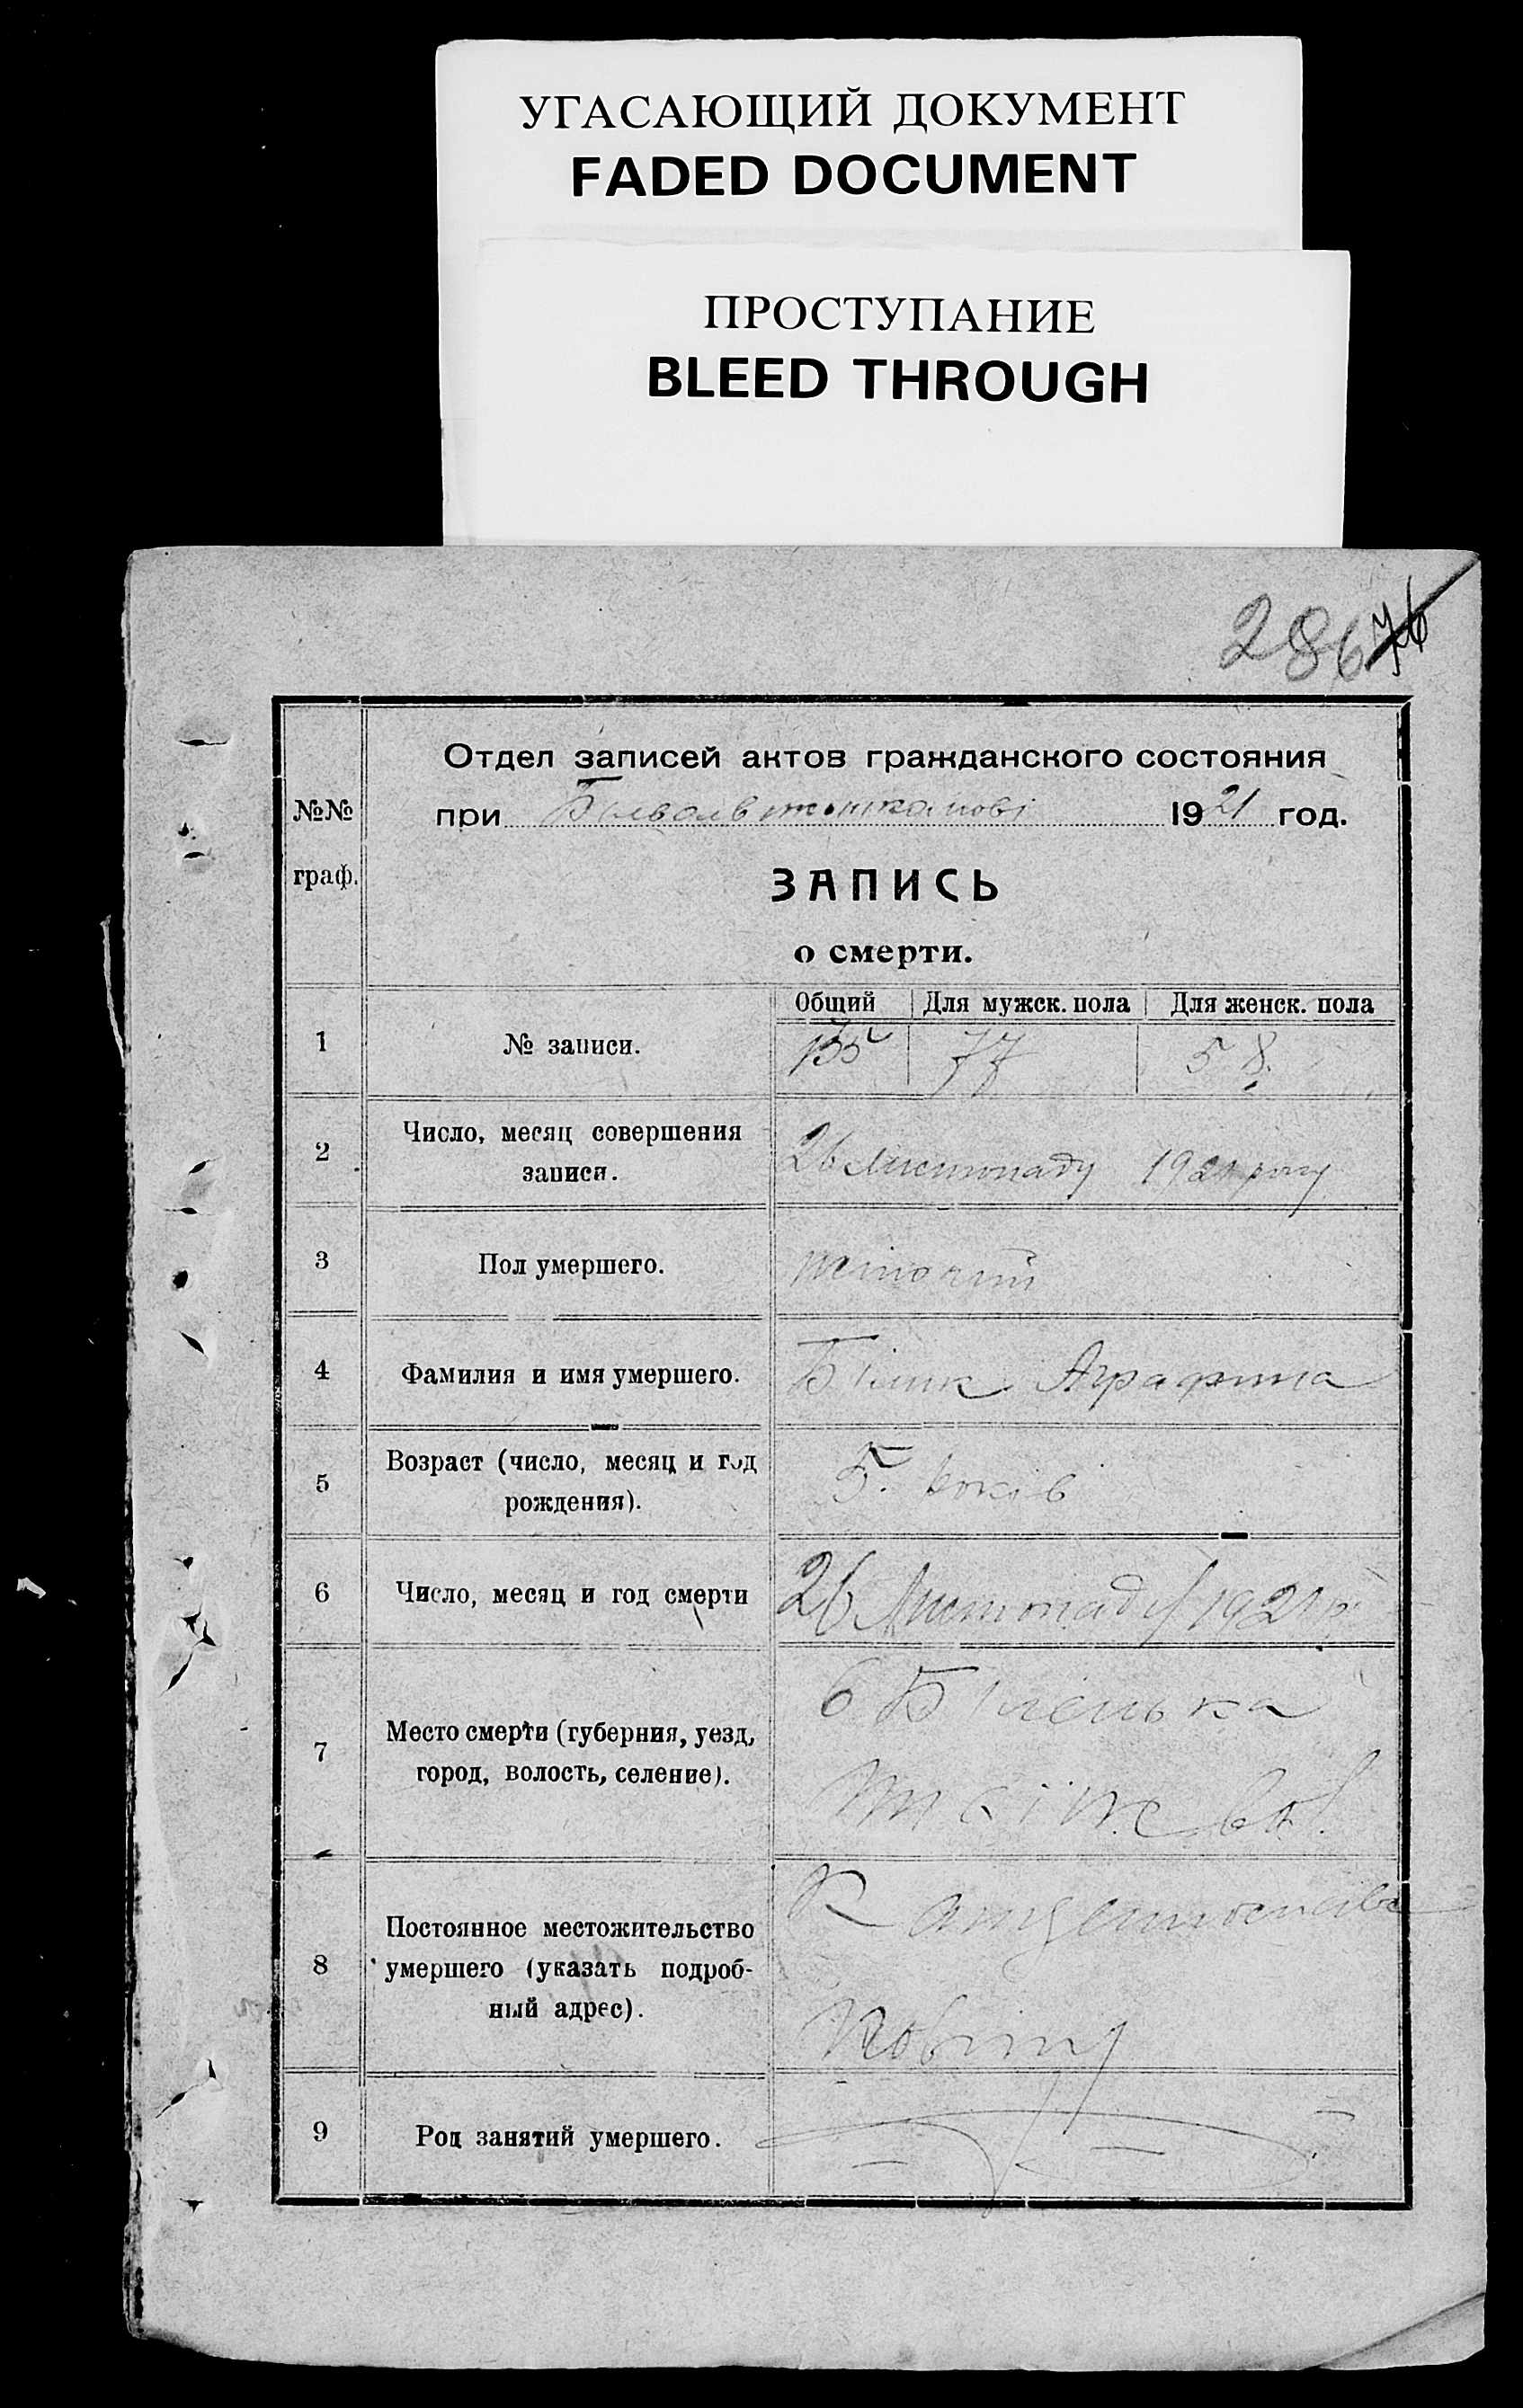 УГАСАЮЩИЙ ДОКУМЕНТ
FADED DOCUMENT
ПРОСТУПАНИЕ
BLEED THROUGH
286 76
Отдел записей актов гражданского состояния
при 1921 год.
№№ граф.
ЗАПИСЬ
о смерти.
Общий Для мужск. пола Для женск. пола
1 № записи. 135 77 58.
2 Число, месяц совершения 26 Листопаду 1921 року
записи.
3 Пол умершего. жіночий
4 Фамилия и имя умершего. Білик Аграфина
5 Возраст (число, месяц и год 5. років
рождения).
6 Число, месяц и год смерти 26 Листопаду 1921 р.
7 Место смерти (губерния, уезд, Біленька
город, волость, селение). вол.
8 Постоянное местожительство
умершего (указать подроб-
ный адрес). повіту
9 Род занятий умершего.